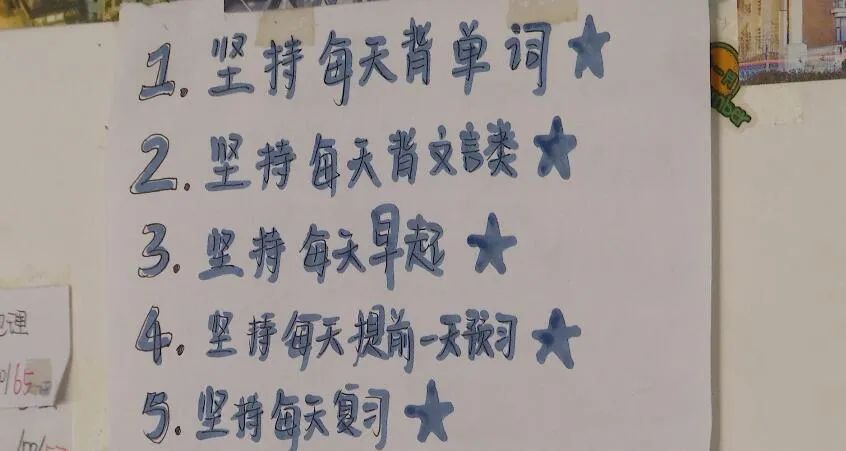 1. 坚持每天背单词★
2. 坚持每天背文言类★
3. 坚持每天早起★
4. 坚持每天提前一天预习★
5. 坚持每天复习★
理
65